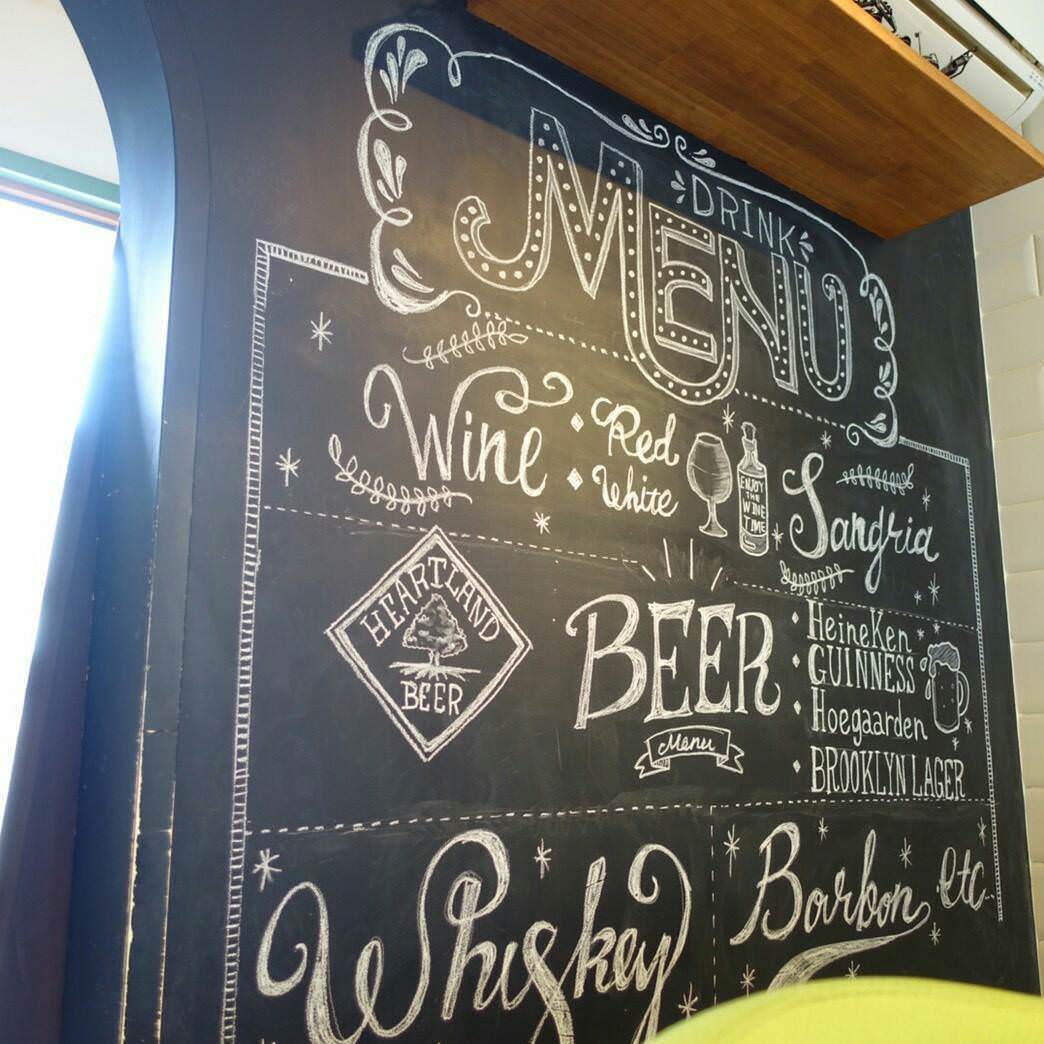 DRINK
MENU
Wine
Red
White
ENJOY
THE
WINE
TIME
Sangria
HEARTLAND
BEER
BEER
Menu
HeineKen
GUINNESS
Hoegaarden
BROOKLYN LAGER
Whiskey
Borbon etc